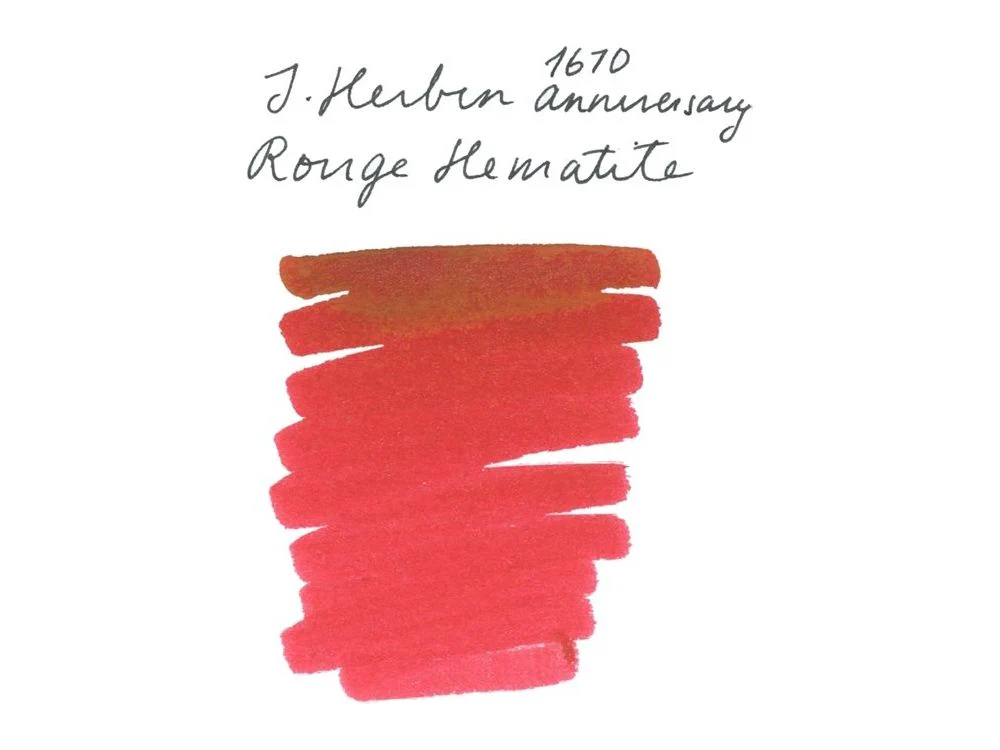 J. Herbin 1670 Anniversary
Rouge Hematite